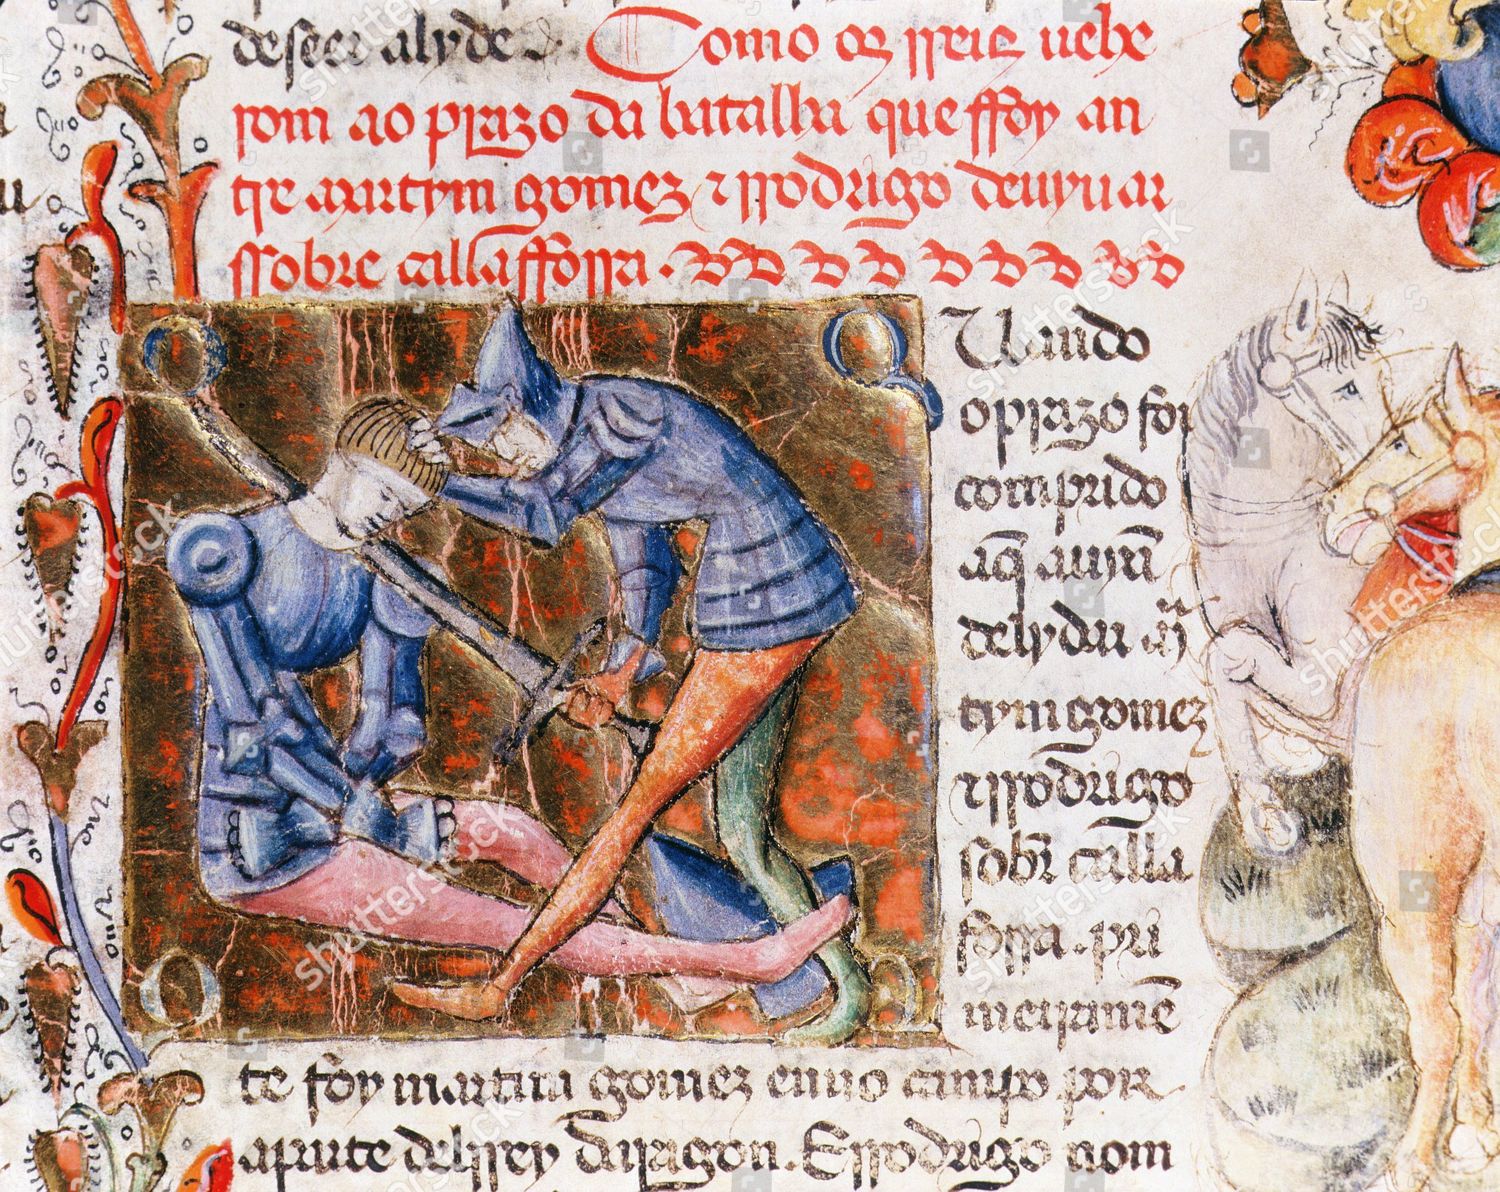 deseer alyde
Como os rreis uehe
rom ao prazo da batalha que ffoy an
tre martym gomez ⁊ rrodrigo deuyuar
ssobre callafforra.
Quando
o prazo foy
comprido
aq̃ auyã
delydar m̃
tym gomez
⁊ rrodrigo
sobr̃ calla
forra. pri
meyramẽ
te foy martim gomez enno campo por
aparte delrrey daragon. E rrodrigo nom
shutterstock